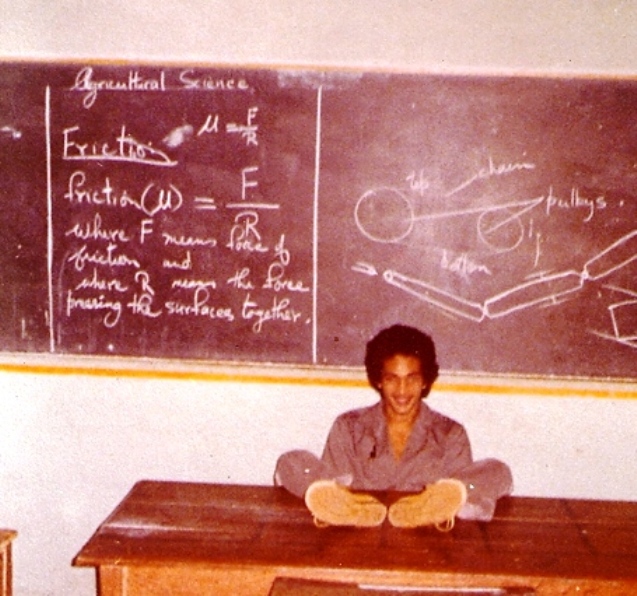 Agricultural Science
Friction μ = F/R
friction (μ) = F/R
where F means force of
friction and
where R means the force
pressing the surfaces together.
top chain
pulleys.
bottom